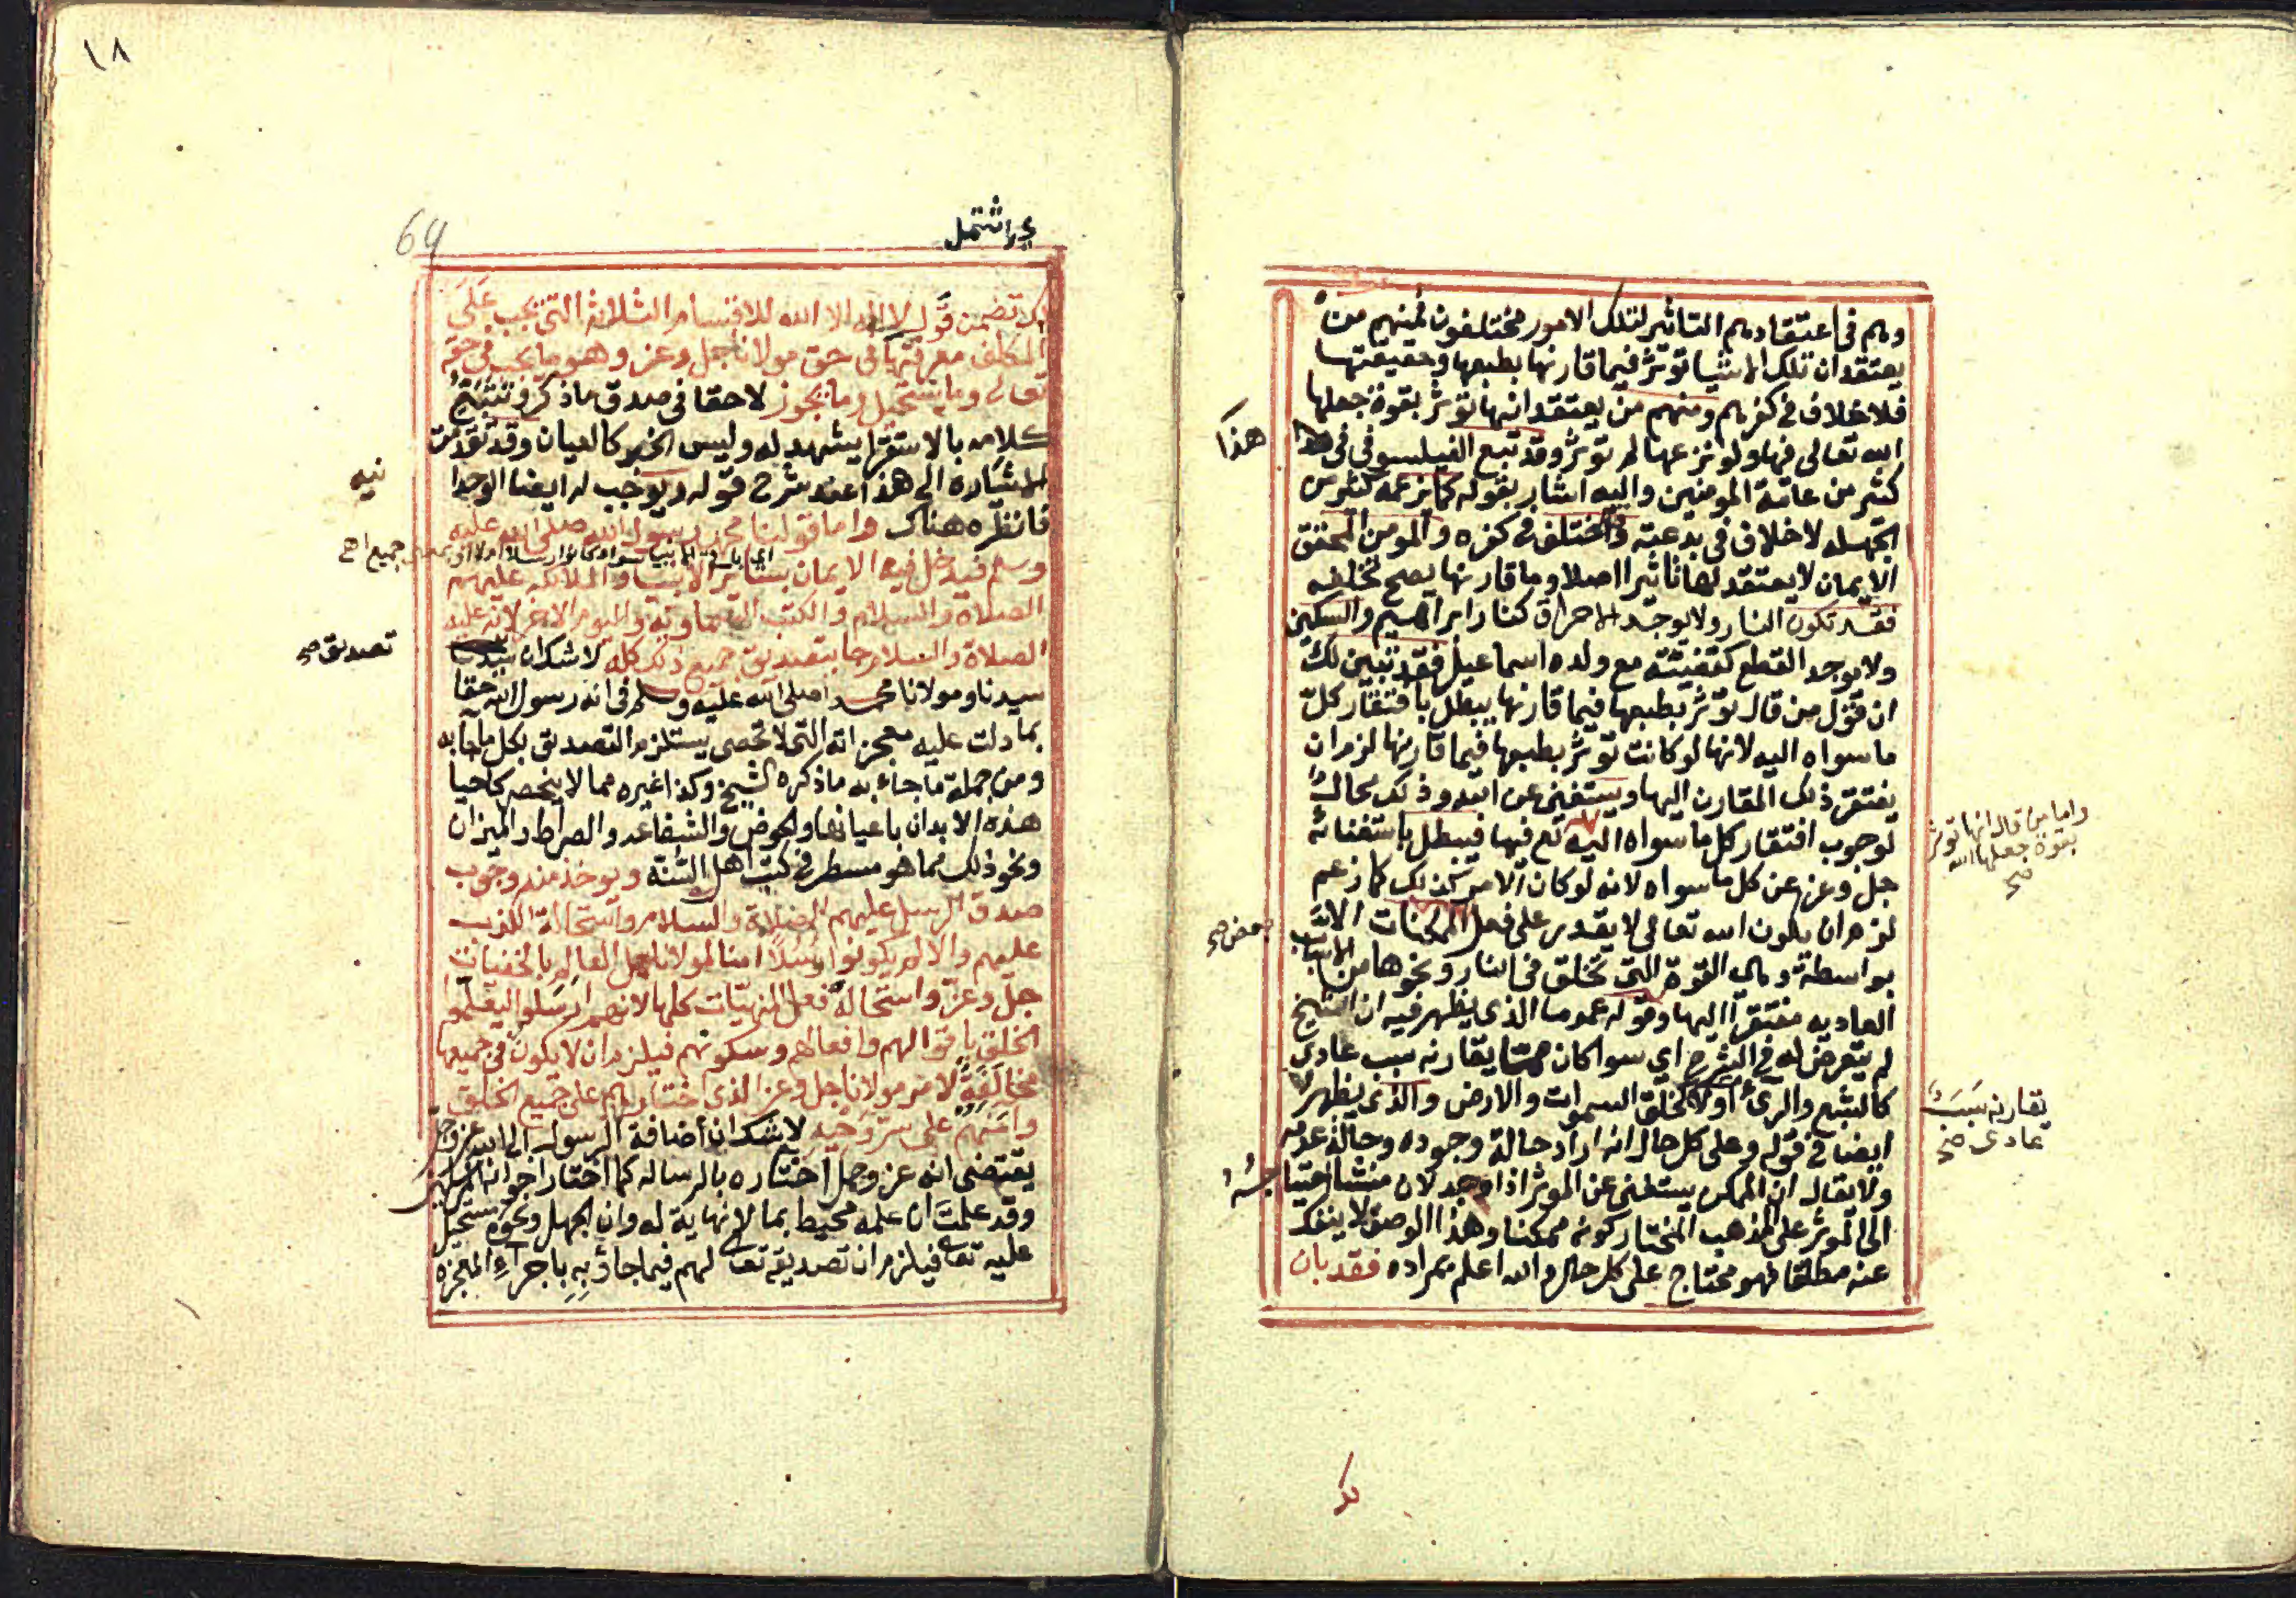 وهم في اعتقادهم التاثير لتلك الامور مختلفون فمنهم من
يعتقد ان تلك الاشيا توثر فيما قارنها بطبعها وحقيقتها
فلا خلاف في كفرهم ومنهم من يعتقد انها توثر بقوة جعلها
الله تعالى فيها ولو نزعها لم توثر وقد تبع الفيلسوفي في هذا
هذا
كثير من عامة المومنين واليه اشار بقوله كما يزعمه كثير من
الجهله لا خلاف في بدعته واختلف في كفره والمومن المحقق
الايمان لا يعتقد لها تاثيرا اصلا وما قارنها يصح تخلفه
فقد تكون النار ولا يوجد الاحراق كنار ابراهيم والسكين
ولا يوجد القطع كقضيته مع ولده اسماعيل فقد تبين لك
ان قول من قال توثر بطبعها فيما قارنها يبطل بافتقار كل
ما سواه اليه لانها لو كانت توثر بطبعها فيما قارنها لزم ان
يفتقر ذلك المقارن اليها ويستغني عن الله وذلك محال
لوجوب افتقار كل ما سواه اليه تع فيها فيبطل باستغنائه
واما من قال انها توثر
بقوة جعلها الله
صح
جل وعز عن كل ما سواه لانه لو كان الامر كذلك كما زعم
لزم ان يكون الله تعالى لا يقدر على فعل الممكنات الا
بعض صح
بواسطة وهي القوة التي تخلق في النار ونحوها من الاسباب
العاديه مفتقرا اليها وقوله عموما الذي يظهر فيه ان الشيخ
لم يتعرض له في الشرح اي سوا كان مما يقارنه سبب عادي
كالشبع والري او لا كخلق السموات والارض والذي يظهر
يقارنه سبب
عادي صح
ايضا في قوله وعلى كل حال انه اراد حالة وجوده وحالة عدمه
ولا يقال ان الممكن يستغني عن الموثر اذا وجد لان منشا احتياجه
الى الموثر على المذهب المختار كونه ممكنا وهذا الوصف لا ينفك
عنه مطلقا فهو محتاج على كل حال والله اعلم بمراده فقد بان
١٨
64
اي اشتمل
لك تضمن قول لا اله الا الله للاقسام الثلاثة التي يجب على
المكلف معرفتها في حق مولانا جل وعز وهو ما يجب في حقه
تعالى وما يستحيل وما يجوز لا حقا في صدق ما ذكر وتتبع
كلامه بالاستقرا يشهد له وليس الخبر كالعيان وقد تقدمت
الاشاره الى هذا عند شرح قوله ويوجب له ايضا الوحدا
نيه
فانظره هناك واما قولنا محمد رسول الله صلى الله عليه
وسلم فيدخل فيه الايمان بسائر الانبيا والملائكه عليهم
الصلاة والسلام والكتب السماوية واليوم الاخر لانه عليه
الصلاة والسلام جا بتصديق جميع ذلك كله لا شك ان
تصديق صح
سيدنا ومولانا محمد صلى الله عليه وسلم في انه رسول الله حقا
بما دلت عليه معجزاته التي لا تحصى يستلزم التصديق بكل ما جا به
ومن جملة ما جاء به ما ذكره الشيخ وكذا غيره مما لا ينحصر كاحيا
هذه الابدان باعيانها والحوض والشفاعه والصراط والميزان
ونحو ذلك مما هو مسطر في كتب اهل السنة ويوخذ منه وجوب
صدق الرسل عليهم الصلاة والسلام واستحالة الكذب
عليهم والا لم يكونوا رسلا امنا لمولانا جل العالم بالخفيات
جل وعز واستحالة فعل المنهيات كلها لانهم ارسلوا ليعلموا
الخلق باقوالهم وافعالهم وسكوتهم فيلزم ان لا يكون في جميعها
مخالفة لامر مولانا جل وعز الذي اختارهم على جميع الخلق
وامنهم على سر وحيه لا شك ان اضافة الرسول الى الله عز وجل
يقتضي انه عز وجل اختاره بالرساله كما اختار اخوانه المرسلين
وقد علمت ان علمه محيط بما لا نهاية له وان الجهل ونحوه مستحيل
عليه تعا فيلزم ان تصديقه تعا لهم فيما جاؤ به باجراء المعجزه